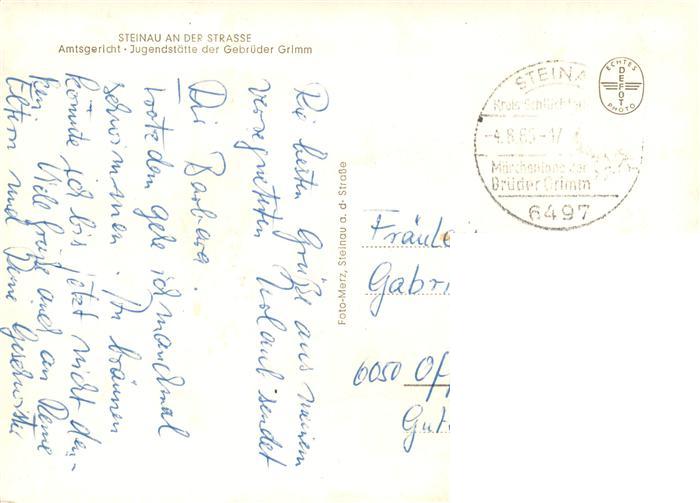 STEINAU AN DER STRASSE
Amtsgericht · Jugendstätte der Gebrüder Grimm
Die besten Grüße aus meinem
verregneten Urlaub sendet
Dir Barbara.
Trotzdem gehe ich manchmal
schwimmen. In bräunen
könnte ich bis jetzt nicht den-
ken. Viele Grüße auch an Deine
Eltern und Deine Geschwister
Foto-Merz, Steinau a. d. Straße
ECHTES
DEFOT
PHOTO
STEINA
Kreis Schlücht
-4.8.65-17
Märchen der
Brüder Grimm
6497
Fräule
Gabri
6050 Off
Gut